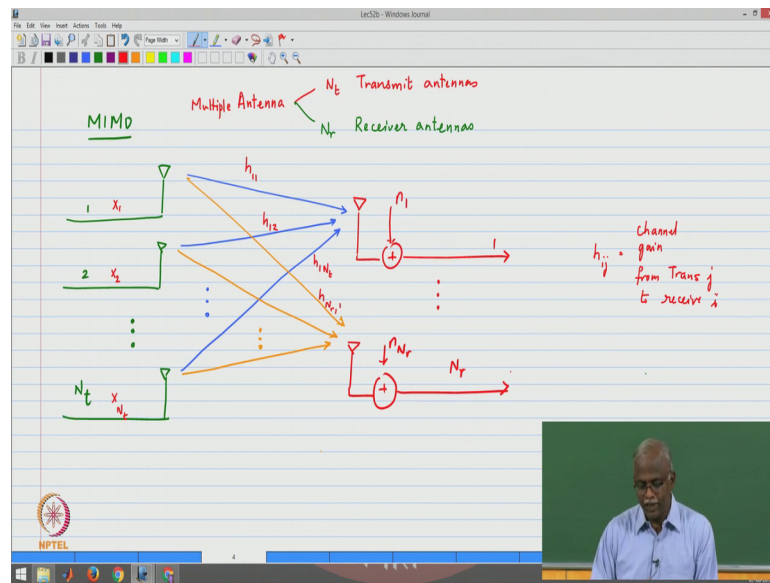 Lec52b - Windows Journal
File Edit View Insert Actions Tools Help
Page Width
B I
MIMO
Multiple Antenna
N_t Transmit antennas
N_r Receiver antennas
1 x_1
2 x_2
N_t x_{N_t}
h_{11}
h_{12}
h_{1N_t}
h_{N_r,1}
n_1
1
n_{N_r}
N_r
h_{ij} = channel
gain
from Trans j
to receive i
NPTEL
4